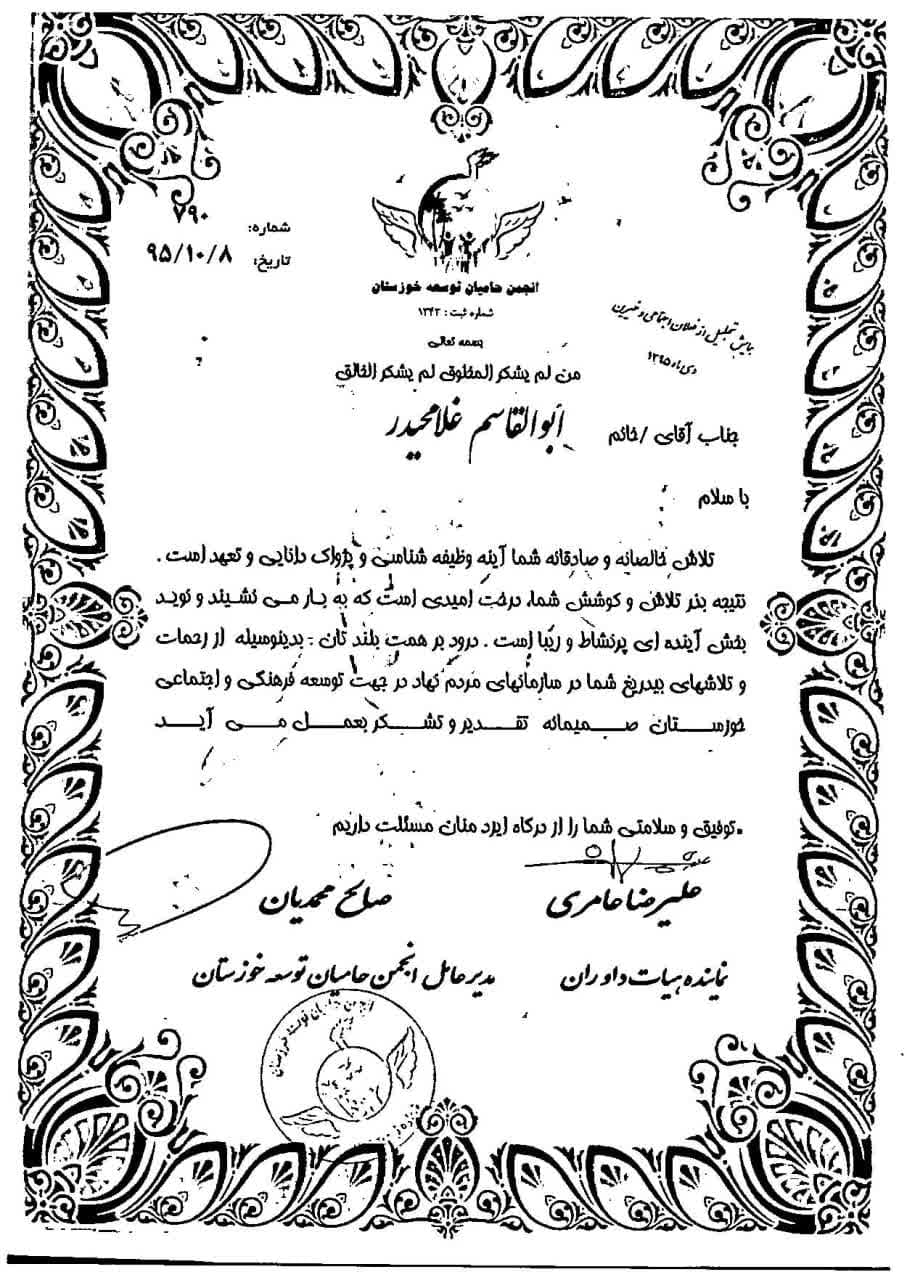 شماره: ۷۹۰
تاریخ: ۹۵/۱۰/۸
انجمن حامیان توسعه خوزستان
شماره ثبت : ۱۳۴۳
همایش تجلیل از فعالان اجتماعی و خیرین
دی ماه ۱۳۹۵
بسمه تعالی
من لم یشکر المخلوق لم یشکر الخالق
جناب آقای /خانم ابوالقاسم غلامحیدر
با سلام
تلاش خالصانه و صادقانه شما آینه وظیفه شناسی و پژواک دانایی و تعهد است .
نتیجه بذر تلاش و کوشش شما، درخت امیدی است که به بار می نشیند و نوید
بخش آینده ای پرنشاط و زیبا است . درود بر همت بلند تان . بدینوسیله از زحمات
و تلاشهای بیدریغ شما در سازمانهای مردم نهاد در جهت توسعه فرهنگی و اجتماعی
خوزستان صمیمانه تقدیر و تشکر بعمل می آید
توفیق و سلامتی شما را از درگاه ایزد منان مسئلت داریم.
علیرضا عامری
صالح محمدیان
نماینده هیات داوران
مدیرعامل انجمن حامیان توسعه خوزستان
انجمن حامیان توسعه خوزستان